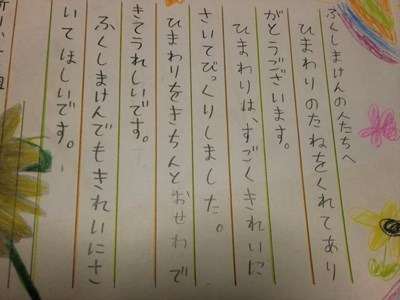 ふくしまけんの人たちへ
ひまわりのたねをくれてあり
がとうございます。
ひまわりは、すごくきれいに
さいてびっくりしました。
ひまわりをきちんとおせわで
きてうれしいです。
ふくしまけんでもきれいにさ
いてほしいです。